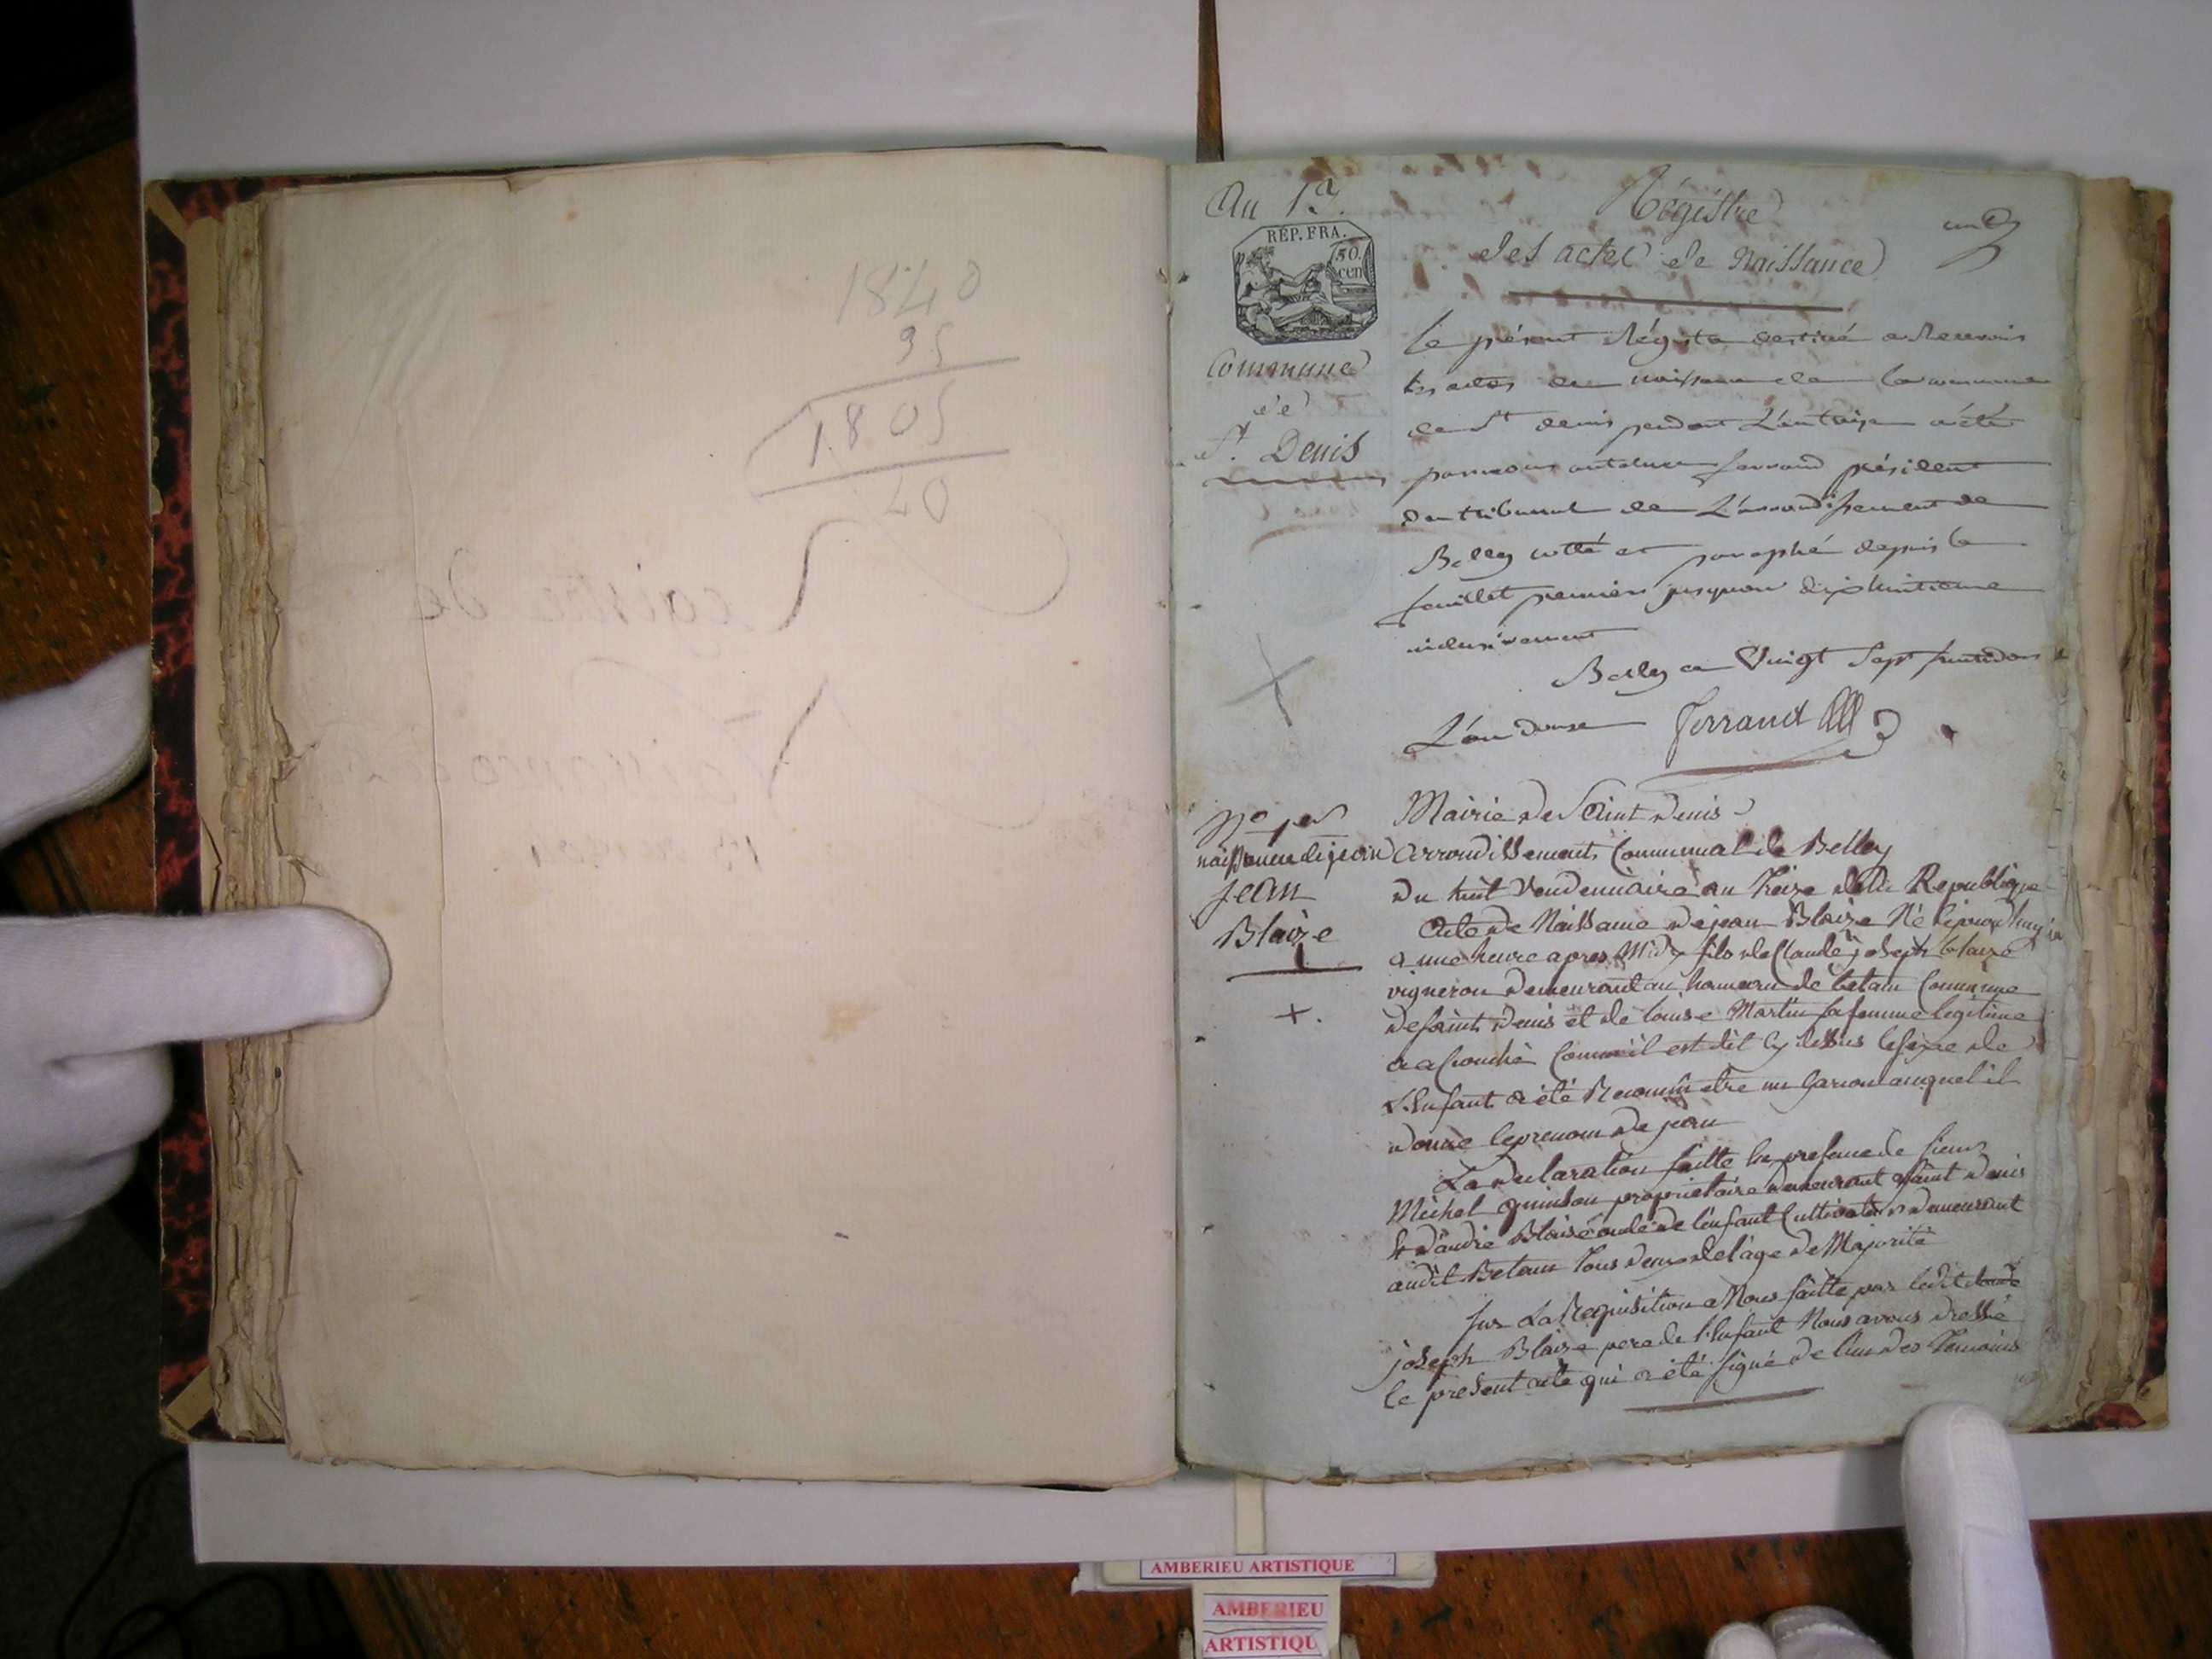 1840
35
1805
40
An 13.
REP. FRA.
50.
cen
Commune
de
St. Denis
Régistre
des actes de Naissance
un
Le présent Régistre destiné a Recevoir
les actes de naissance de la commune
de St denis pendant L'an treize a été
par nous anthelme ferrand président
du tribunal de L'arrondissement de
Belley cotté et paraphé depuis le
feuillet premier jusquau dixhuitieme
inclusivement
Belley ce Vingt Sept fructidor
L'an douze Ferrand
No 1er
naissance de jean
Jean
Blaize
Mairie de Saint denis
Arrondissement Communal de Belley
du huit Vendemiaire an treize de la Republique
Acte de Naissance de jean Blaize Né le jourdhuy
a une heure apres Midy fils de Claude joseph blaize
vigneron demeurant au hameau de betam Commune
de saint denis et de louise Martin sa femme legitime
a acouché Comme il est dit cy dessus le sexe de
L'Enfant a été Reconnu etre un garcon auquel il
donne le prenom de jean
La declaration faitte En presence de sieur
Michel quinson proprietaire demeurant a saint denis
Et d'andré Blaise oncle de l'enfant Cultivateur demeurant
audit Betam tous deux de l'age de Majorité
sur La Requisition a Nous faitte par ledit claude
joseph Blaize pere de l'Enfant Nous avons dressé
le present acte qui a été signé de l'un des temoins
AMBERIEU ARTISTIQUE
AMBERIEU
ARTISTIQU